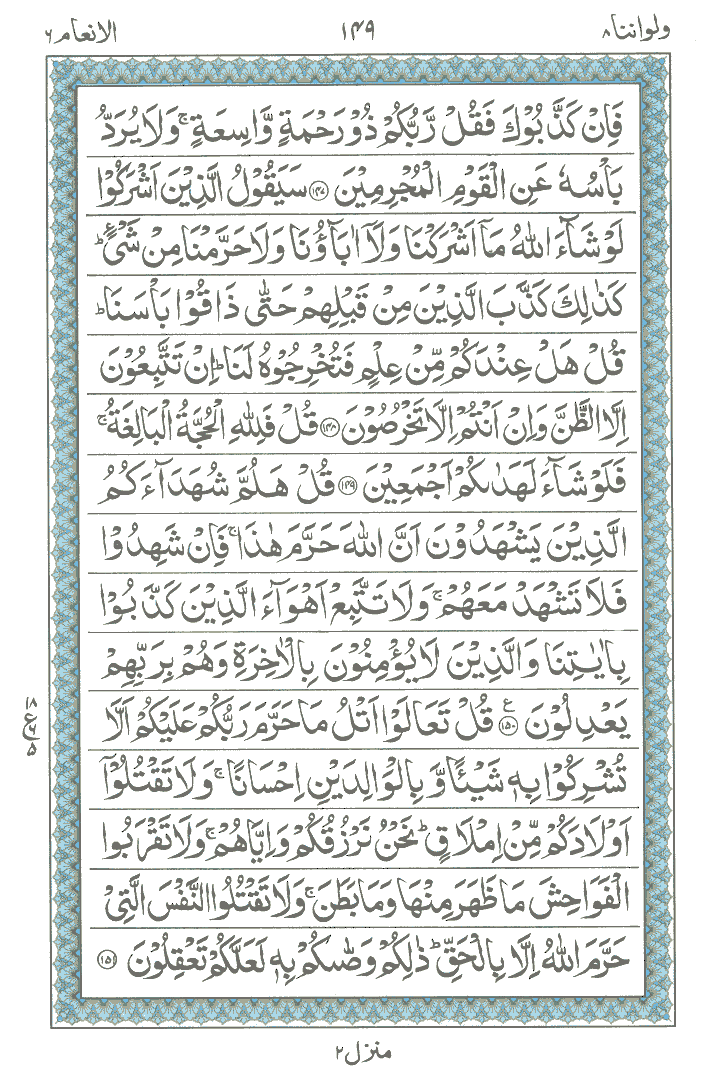 ولواننا ٨ ١٤٩ الانعام ٦
فَاِنْ كَذَّبُوْكَ فَقُلْ رَّبُّكُمْ ذُوْ رَحْمَةٍ وَّاسِعَةٍ ۚ وَلَا يُرَدُّ
بَاْسُهٗ عَنِ الْقَوْمِ الْمُجْرِمِيْنَ ﴿۱۴۷﴾ سَيَقُوْلُ الَّذِيْنَ اَشْرَكُوْا
لَوْ شَآءَ اللّٰهُ مَاۤ اَشْرَكْنَا وَلَاۤ اٰبَآؤُنَا وَلَا حَرَّمْنَا مِنْ شَیْءٍ ؕ
كَذٰلِكَ كَذَّبَ الَّذِيْنَ مِنْ قَبْلِهِمْ حَتّٰى ذَاقُوْا بَاْسَنَا ؕ
قُلْ هَلْ عِنْدَكُمْ مِّنْ عِلْمٍ فَتُخْرِجُوْهُ لَنَا ؕ اِنْ تَتَّبِعُوْنَ
اِلَّا الظَّنَّ وَاِنْ اَنْتُمْ اِلَّا تَخْرُصُوْنَ ﴿۱۴۸﴾ قُلْ فَلِلّٰهِ الْحُجَّةُ الْبَالِغَةُ ۚ
فَلَوْ شَآءَ لَهَدٰىكُمْ اَجْمَعِيْنَ ﴿۱۴۹﴾ قُلْ هَلُمَّ شُهَدَآءَكُمُ
الَّذِيْنَ يَشْهَدُوْنَ اَنَّ اللّٰهَ حَرَّمَ هٰذَا ۚ فَاِنْ شَهِدُوْا
فَلَا تَشْهَدْ مَعَهُمْ ۚ وَلَا تَتَّبِعْ اَهْوَآءَ الَّذِيْنَ كَذَّبُوْا
بِاٰيٰتِنَا وَالَّذِيْنَ لَا يُؤْمِنُوْنَ بِالْاٰخِرَةِ وَهُمْ بِرَبِّهِمْ
يَعْدِلُوْنَ ﴿۱۵۰﴾ ع قُلْ تَعَالَوْا اَتْلُ مَا حَرَّمَ رَبُّكُمْ عَلَيْكُمْ اَلَّا
تُشْرِكُوْا بِهٖ شَيْـًٔا وَّبِالْوَالِدَيْنِ اِحْسَانًا ۚ وَلَا تَقْتُلُوْۤا
اَوْلَادَكُمْ مِّنْ اِمْلَاقٍ ؕ نَحْنُ نَرْزُقُكُمْ وَاِيَّاهُمْ ۚ وَلَا تَقْرَبُوا
الْفَوَاحِشَ مَا ظَهَرَ مِنْهَا وَمَا بَطَنَ ۚ وَلَا تَقْتُلُوا النَّفْسَ الَّتِیْ
حَرَّمَ اللّٰهُ اِلَّا بِالْحَقِّ ؕ ذٰلِكُمْ وَصّٰىكُمْ بِهٖ لَعَلَّكُمْ تَعْقِلُوْنَ ﴿۱۵۱﴾
١٨
ع ٦
٥
منزل ٢